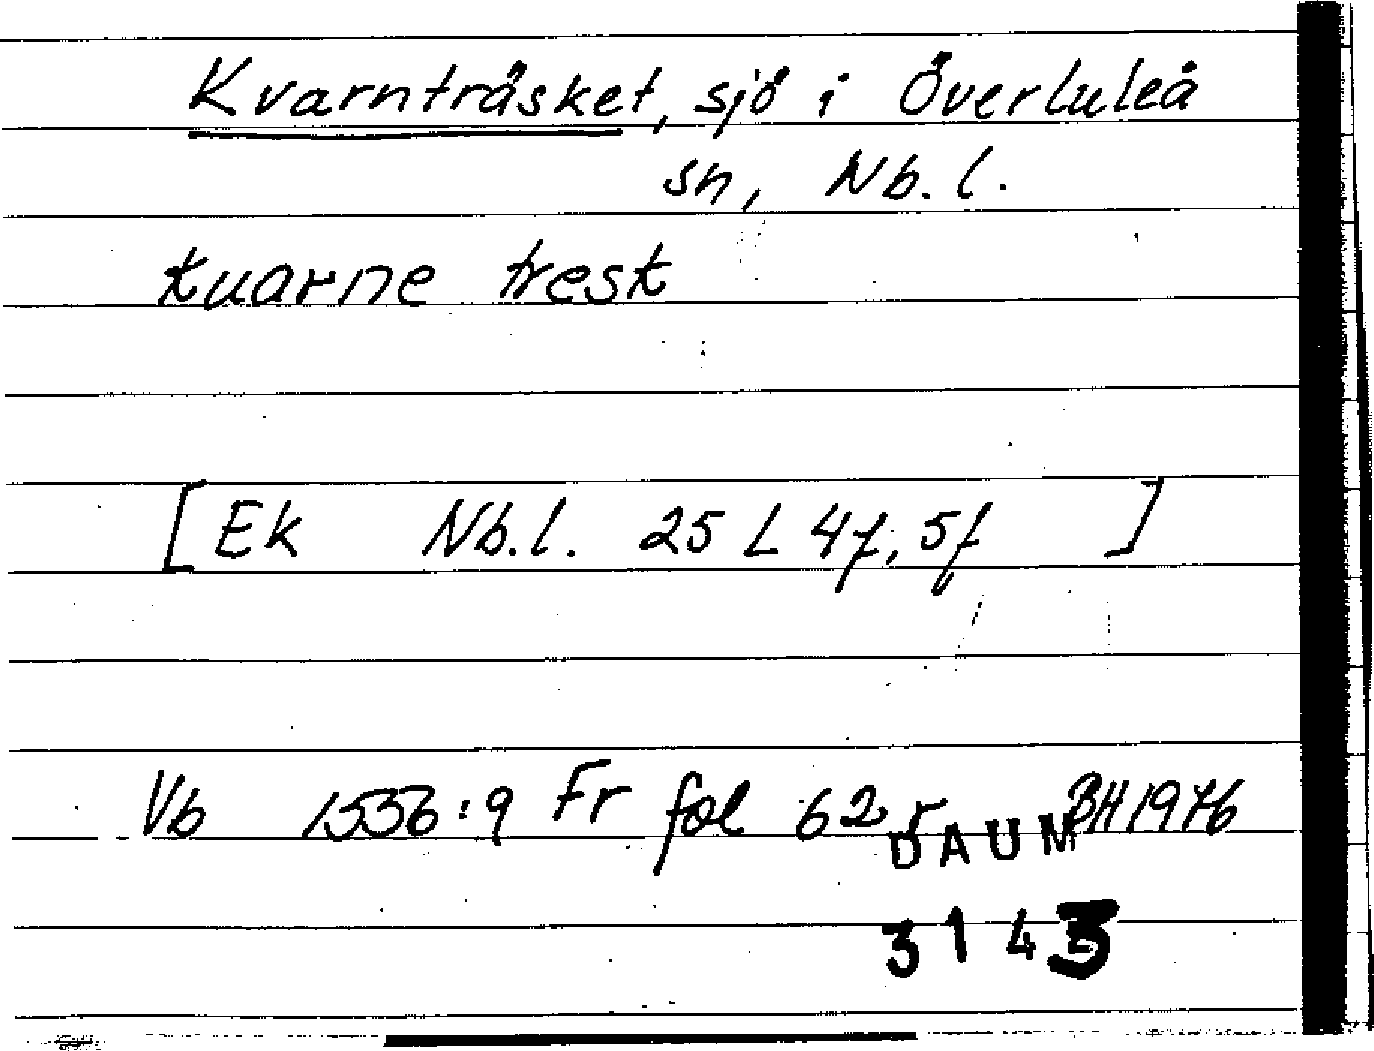 Kvarnträsket, sjö i Överluleå
sn, Nb. l.
kuarne tresk
[Ek Nb.l. 25 L 4f, 5f ]
Vb 1556:9 Fr fol 62r BH 1976
DAUM
3143